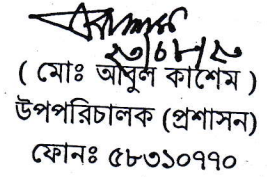 ২৩/০৮/২৩
( মোঃ আবুল কাশেম )
উপপরিচালক (প্রশাসন)
ফোনঃ ৫৮৩১০৭৭০